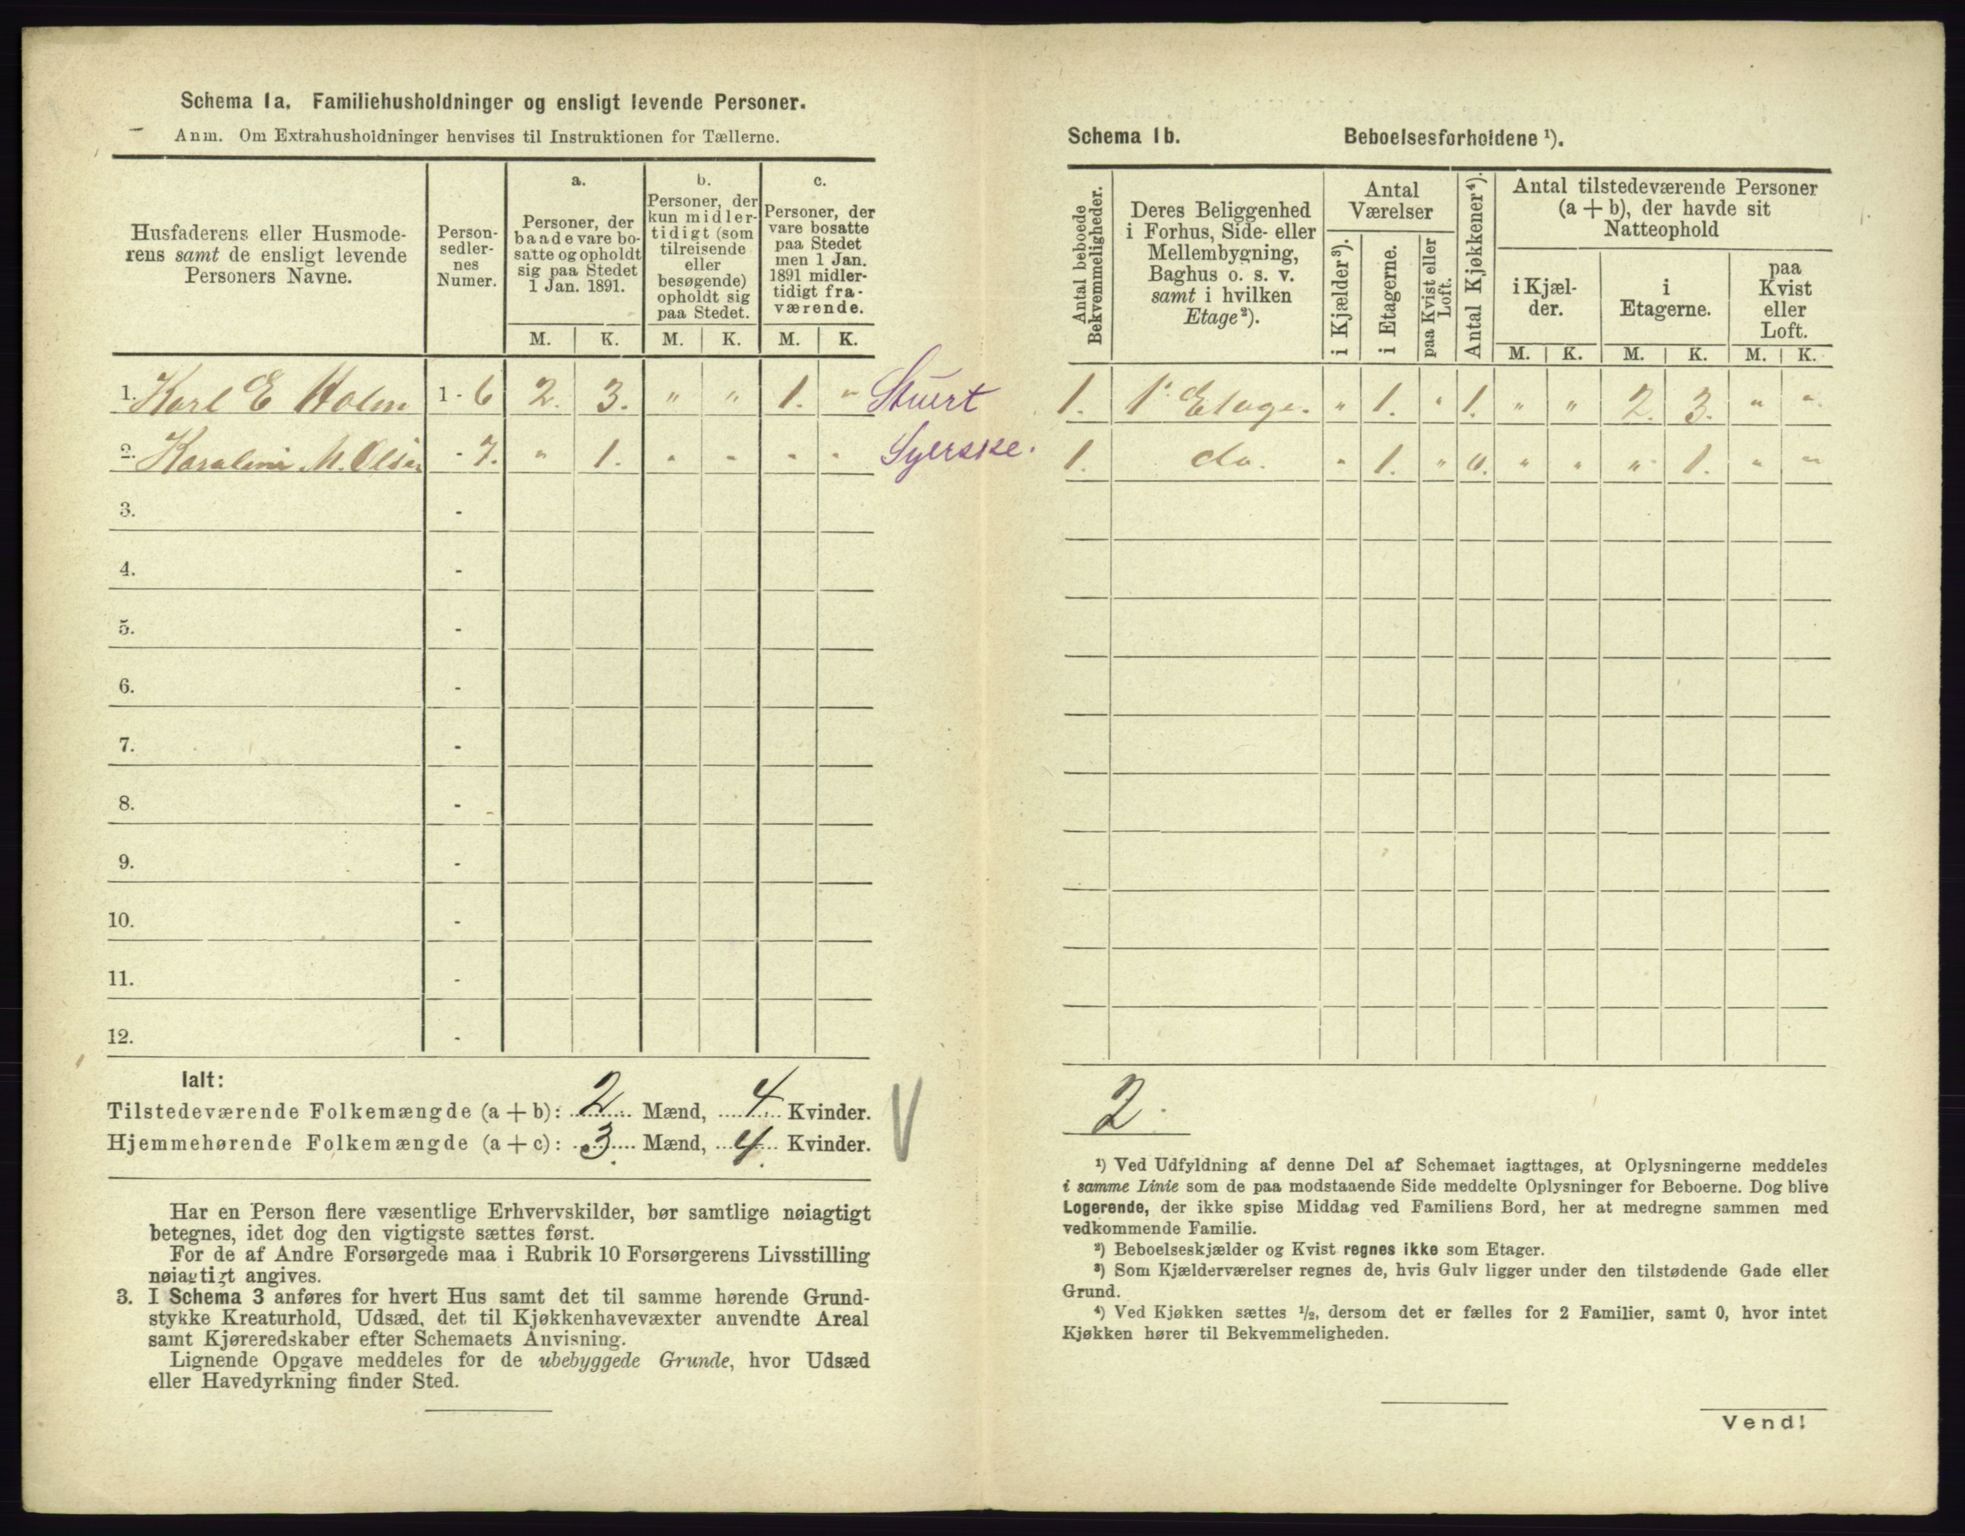 Schema 1a. Familiehusholdninger og ensligt levende Personer.
Anm. Om Extrahusholdninger henvises til Instruktionen for Tællerne.
Husfaderens eller Husmode-
rens samt de ensligt levende
Personers Navne.
Person-
sedler-
nes
Numer.
a.
Personer, der
baade vare bo-
satte og opholdt
sig paa Stedet
1 Jan. 1891.
b.
Personer, der
kun midler-
tidigt (som
tilreisende
eller
besøgende)
opholdt sig
paa Stedet.
c.
Personer, der
vare bosatte
paa Stedet
men 1 Jan.
1891 midler-
tidigt fra-
værende.
M. K. M. K. M. K.
1. Karl E Holm 1 - 6 2. 3. " " 1. " Stuert
2. Karoline M. Olsen - 7. " 1. " " " " Syerske.
3. -
4. -
5. -
6. -
7. -
8. -
9. -
10. -
11. -
12. -
Ialt:
Tilstedeværende Folkemængde (a + b): 2 Mænd, 4 Kvinder.
Hjemmehørende Folkemængde (a + c): 3 Mænd, 4 Kvinder.
Har en Person flere væsentlige Erhvervskilder, bør samtlige nøiagtigt
betegnes, idet dog den vigtigste sættes først.
For de af Andre Forsørgede maa i Rubrik 10 Forsørgerens Livsstilling
nøiagtigt angives.
3. I Schema 3 anføres for hvert Hus samt det til samme hørende Grund-
stykke Kreaturhold, Udsæd, det til Kjøkkenhavevæxter anvendte Areal
samt Kjøreredskaber efter Schemaets Anvisning.
Lignende Opgave meddeles for de ubebyggede Grunde, hvor Udsæd
eller Havedyrkning finder Sted.
Schema 1b. Beboelsesforholdene ¹).
Antal beboede
Bekvemmeligheder.
Deres Beliggenhed
i Forhus, Side- eller
Mellembygning,
Baghus o. s. v.
samt i hvilken
Etage²).
Antal
Værelser
i Kjælder³).
i Etagerne.
paa Kvist eller
Loft.
Antal Kjøkkener⁴).
Antal tilstedeværende Personer
(a + b), der havde sit
Natteophold
i Kjæl-
der.
i
Etagerne.
paa
Kvist
eller
Loft.
M. K. M. K. M. K.
1. 1ᵉ Etage. " 1. " 1. " " 2. 3. " "
1. do. " 1. " 0. " " " 1. " "
2.
¹) Ved Udfyldning af denne Del af Schemaet iagttages, at Oplysningerne meddeles
i samme Linie som de paa modstaaende Side meddelte Oplysninger for Beboerne. Dog blive
Logerende, der ikke spise Middag ved Familiens Bord, her at medregne sammen med
vedkommende Familie.
²) Beboelseskjælder og Kvist regnes ikke som Etager.
³) Som Kjælderværelser regnes de, hvis Gulv ligger under den tilstødende Gade eller
Grund.
⁴) Ved Kjøkken sættes ½, dersom det er fælles for 2 Familier, samt 0, hvor intet
Kjøkken hører til Bekvemmeligheden.
Vend!